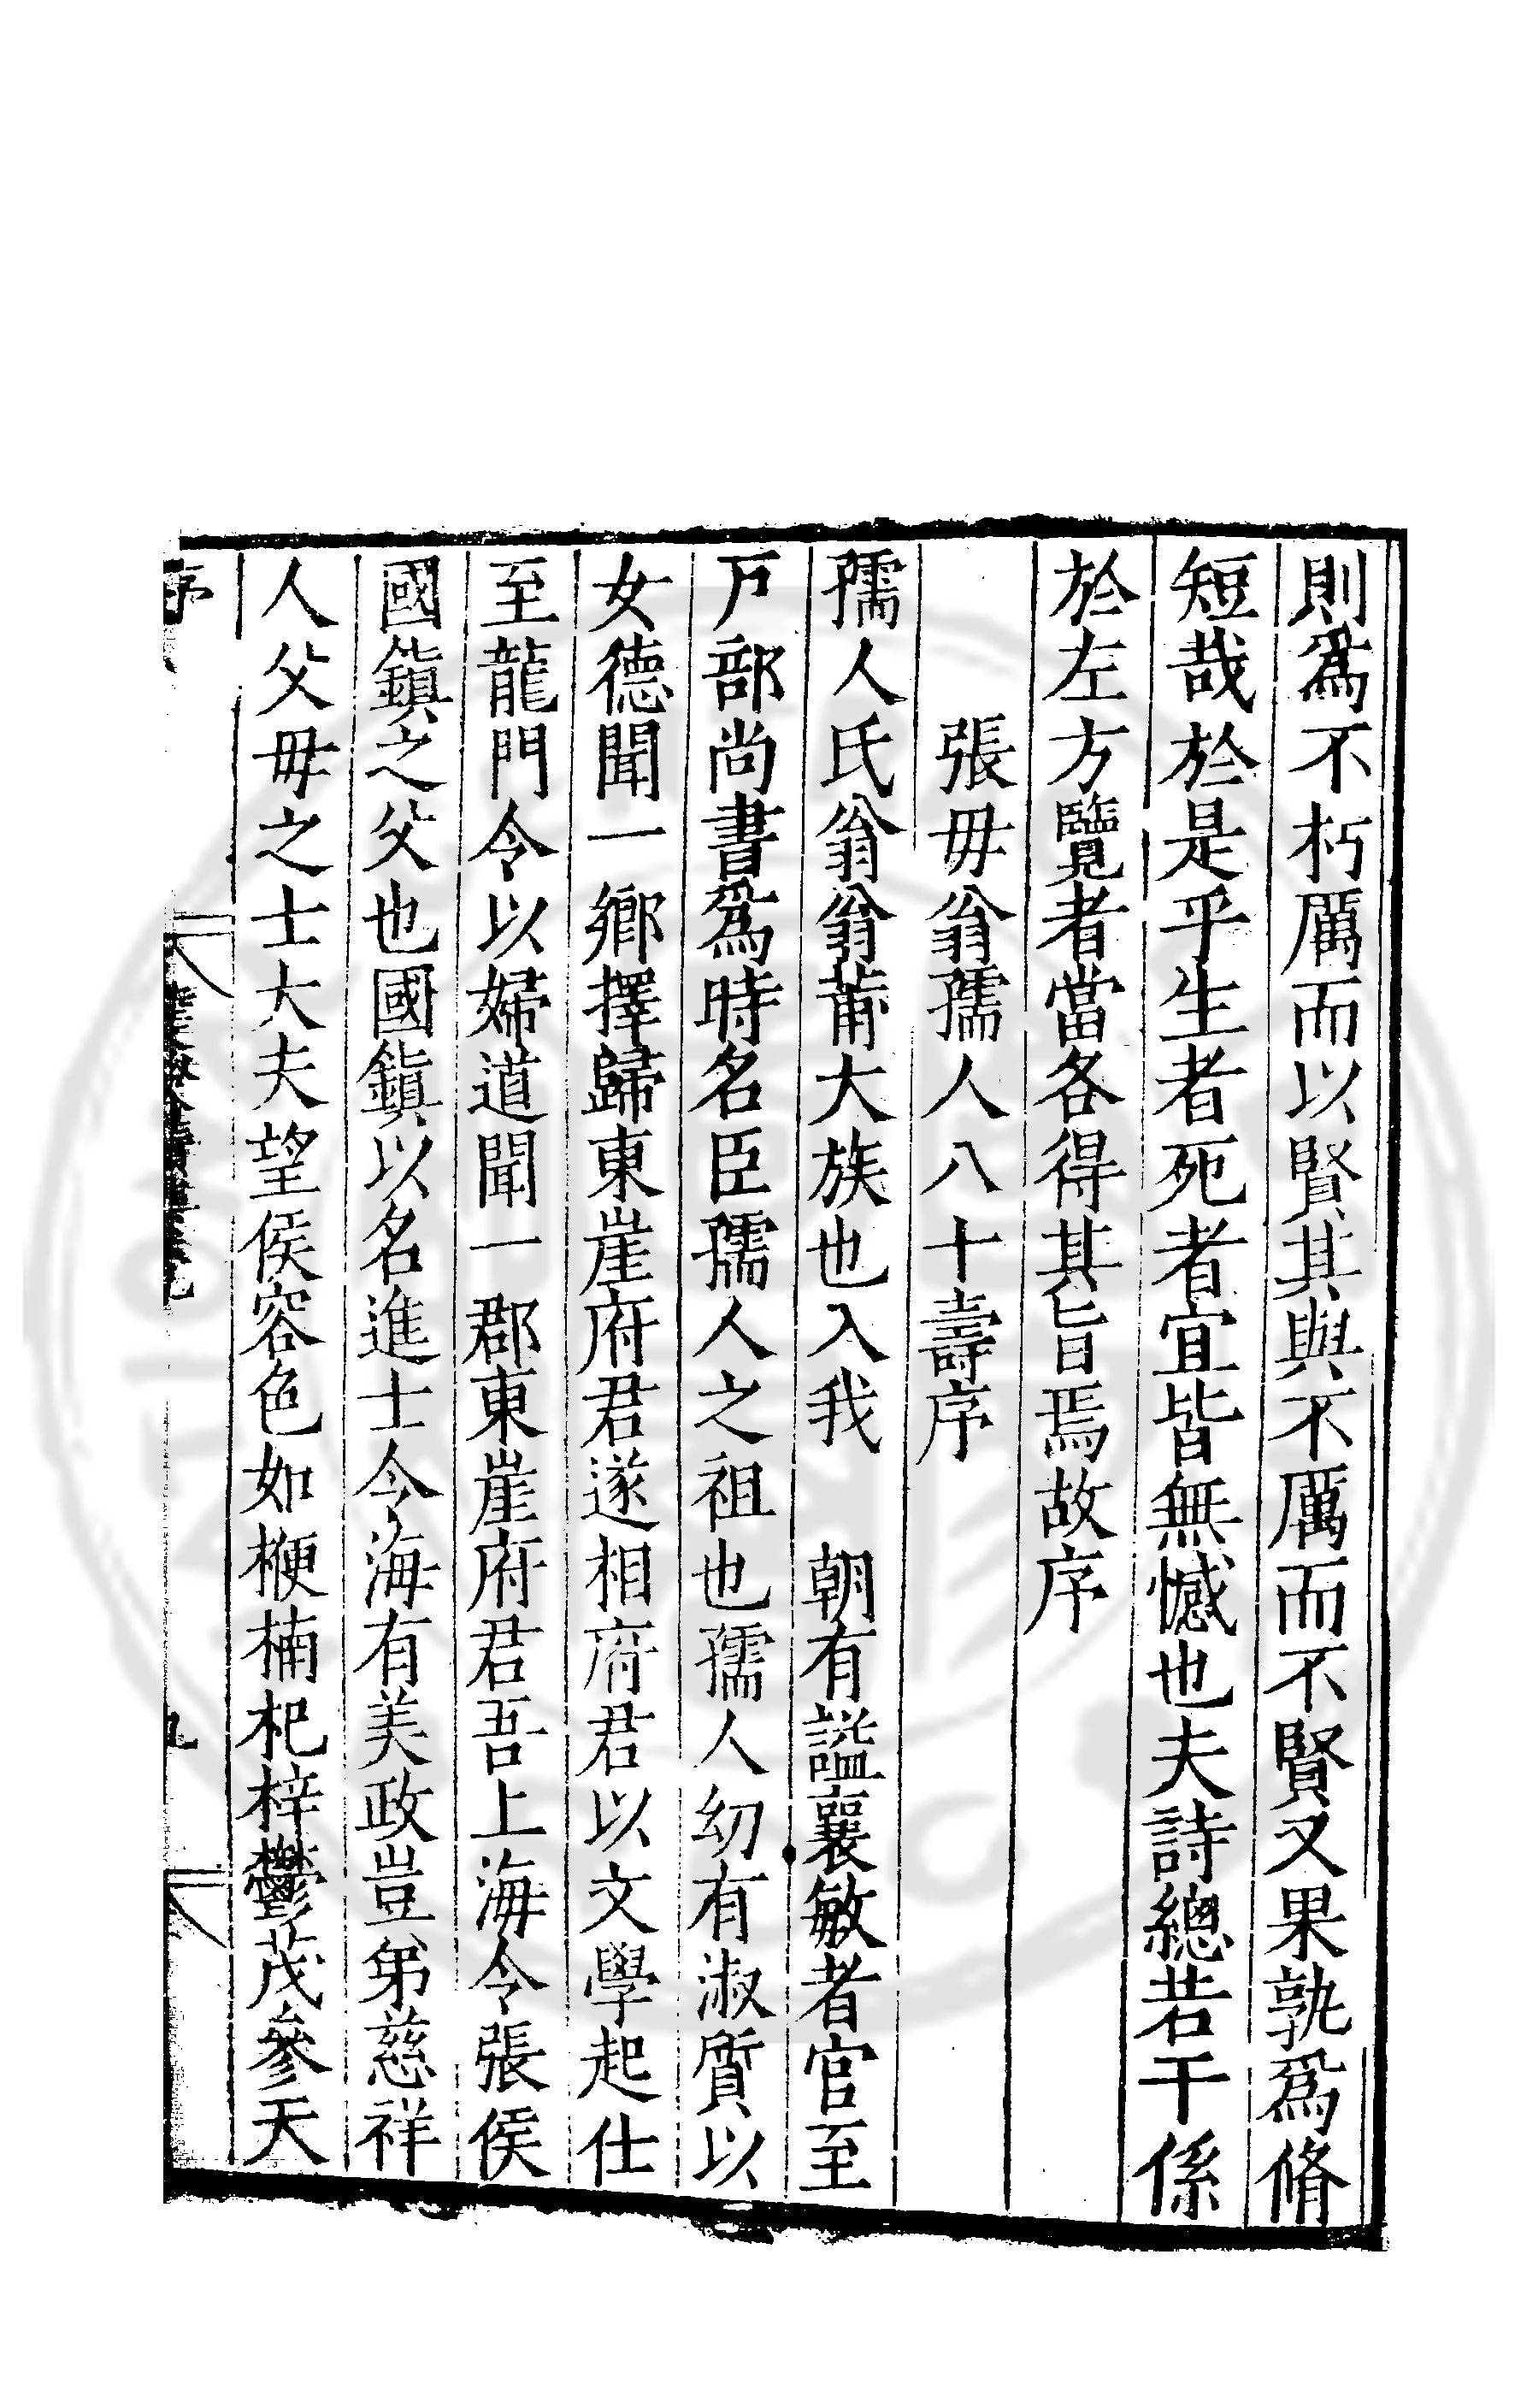 則爲不朽厲而以賢其與不厲而不賢又果孰爲脩
短哉於是乎生者死者宜皆無憾也夫詩總若干係
於左方覽者當各得其旨焉故序
張毋翁孺人八十壽序
孺人氏翁翁莆大族也入我　朝有謚襄敏者官至
戶部尚書爲時名臣孺人之祖也孺人幼有淑質以
女德聞一鄉擇歸東崖府君遂相府君以文學起仕
至龍門令以婦道聞一郡東崖府君吾上海令張侯
國鎮之父也國鎮以名進士令海有美政豈弟慈祥
人父毋之士大夫望侯容色如楩楠杞梓鬱茂參天
序
九